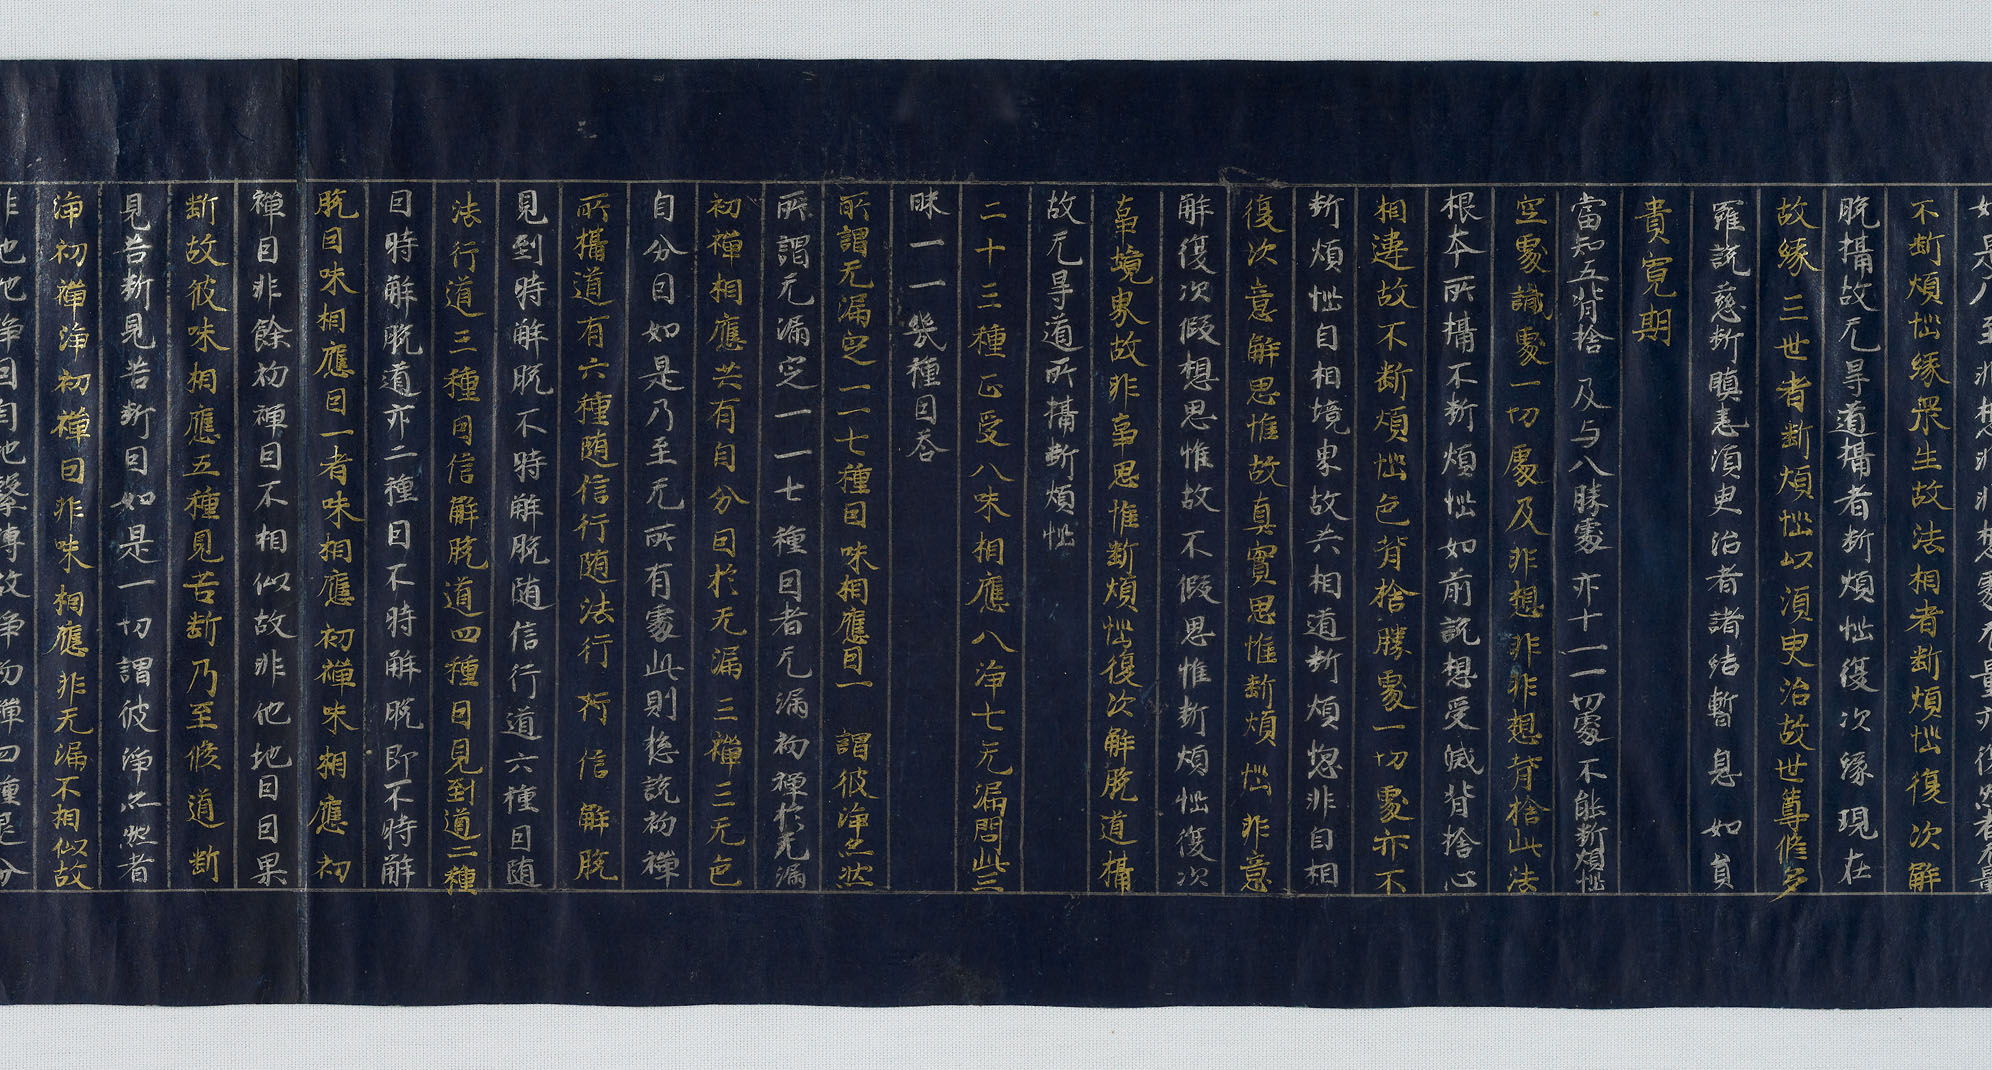 如是乃至非想非非想處无量亦復
不断煩惱縁衆生故法相者断煩惱復次解
脱攝故无㝵道攝者断煩惱復次縁現在
故縁三世者断煩惱以湏臾治故世尊修多
羅説慈断瞋恚湏臾治者諸结暫息如負
貴寛期
當知五背捨及与八勝處亦十一一切處不能断煩惱
空處識處一切處及非想非非想背捨此法
根夲所攝不断煩惱如前説想受滅背捨心
相違故不断煩惱色背捨勝處一切處亦不
断煩惱自相境界故共相道断煩惱非自相
復次意解思惟故真實思惟断煩惱非意
解復次假想思惟故不假思惟断煩惱復次
事境界故非事思惟断煩惱復次解脱道攝
故无㝵道所攝断煩惱
二十三種正受八味相應八浄七无漏問此三
昧一一㡬種因荅
所謂无漏定一一七種因味相應因一謂彼浄亦然
所謂无漏定一一七種因者无漏初禅扵无漏
初禅相應共有自分因扵无漏三禅三无色
自分因如是乃至无所有處此則揔説初禅
所攝道有六種随信行随法行行信解脱
見到時解脱不時解脱随信行道六種因随
法行道三種因信解脱道四種因見到道二種
因時解脱道亦二種因不時解脱即不時解
脱因味相應因一者味相應初禅味相應初
禅因非餘初禅因不相似故非他地因因果
断故彼味相應五種見苦断乃至修道断
見苦断見苦断因如是一切謂彼浄亦然者
浄初禅浄初禅因非味相應非无漏不相似故
非他地浄因自地繫縛故浄初禅四種退分